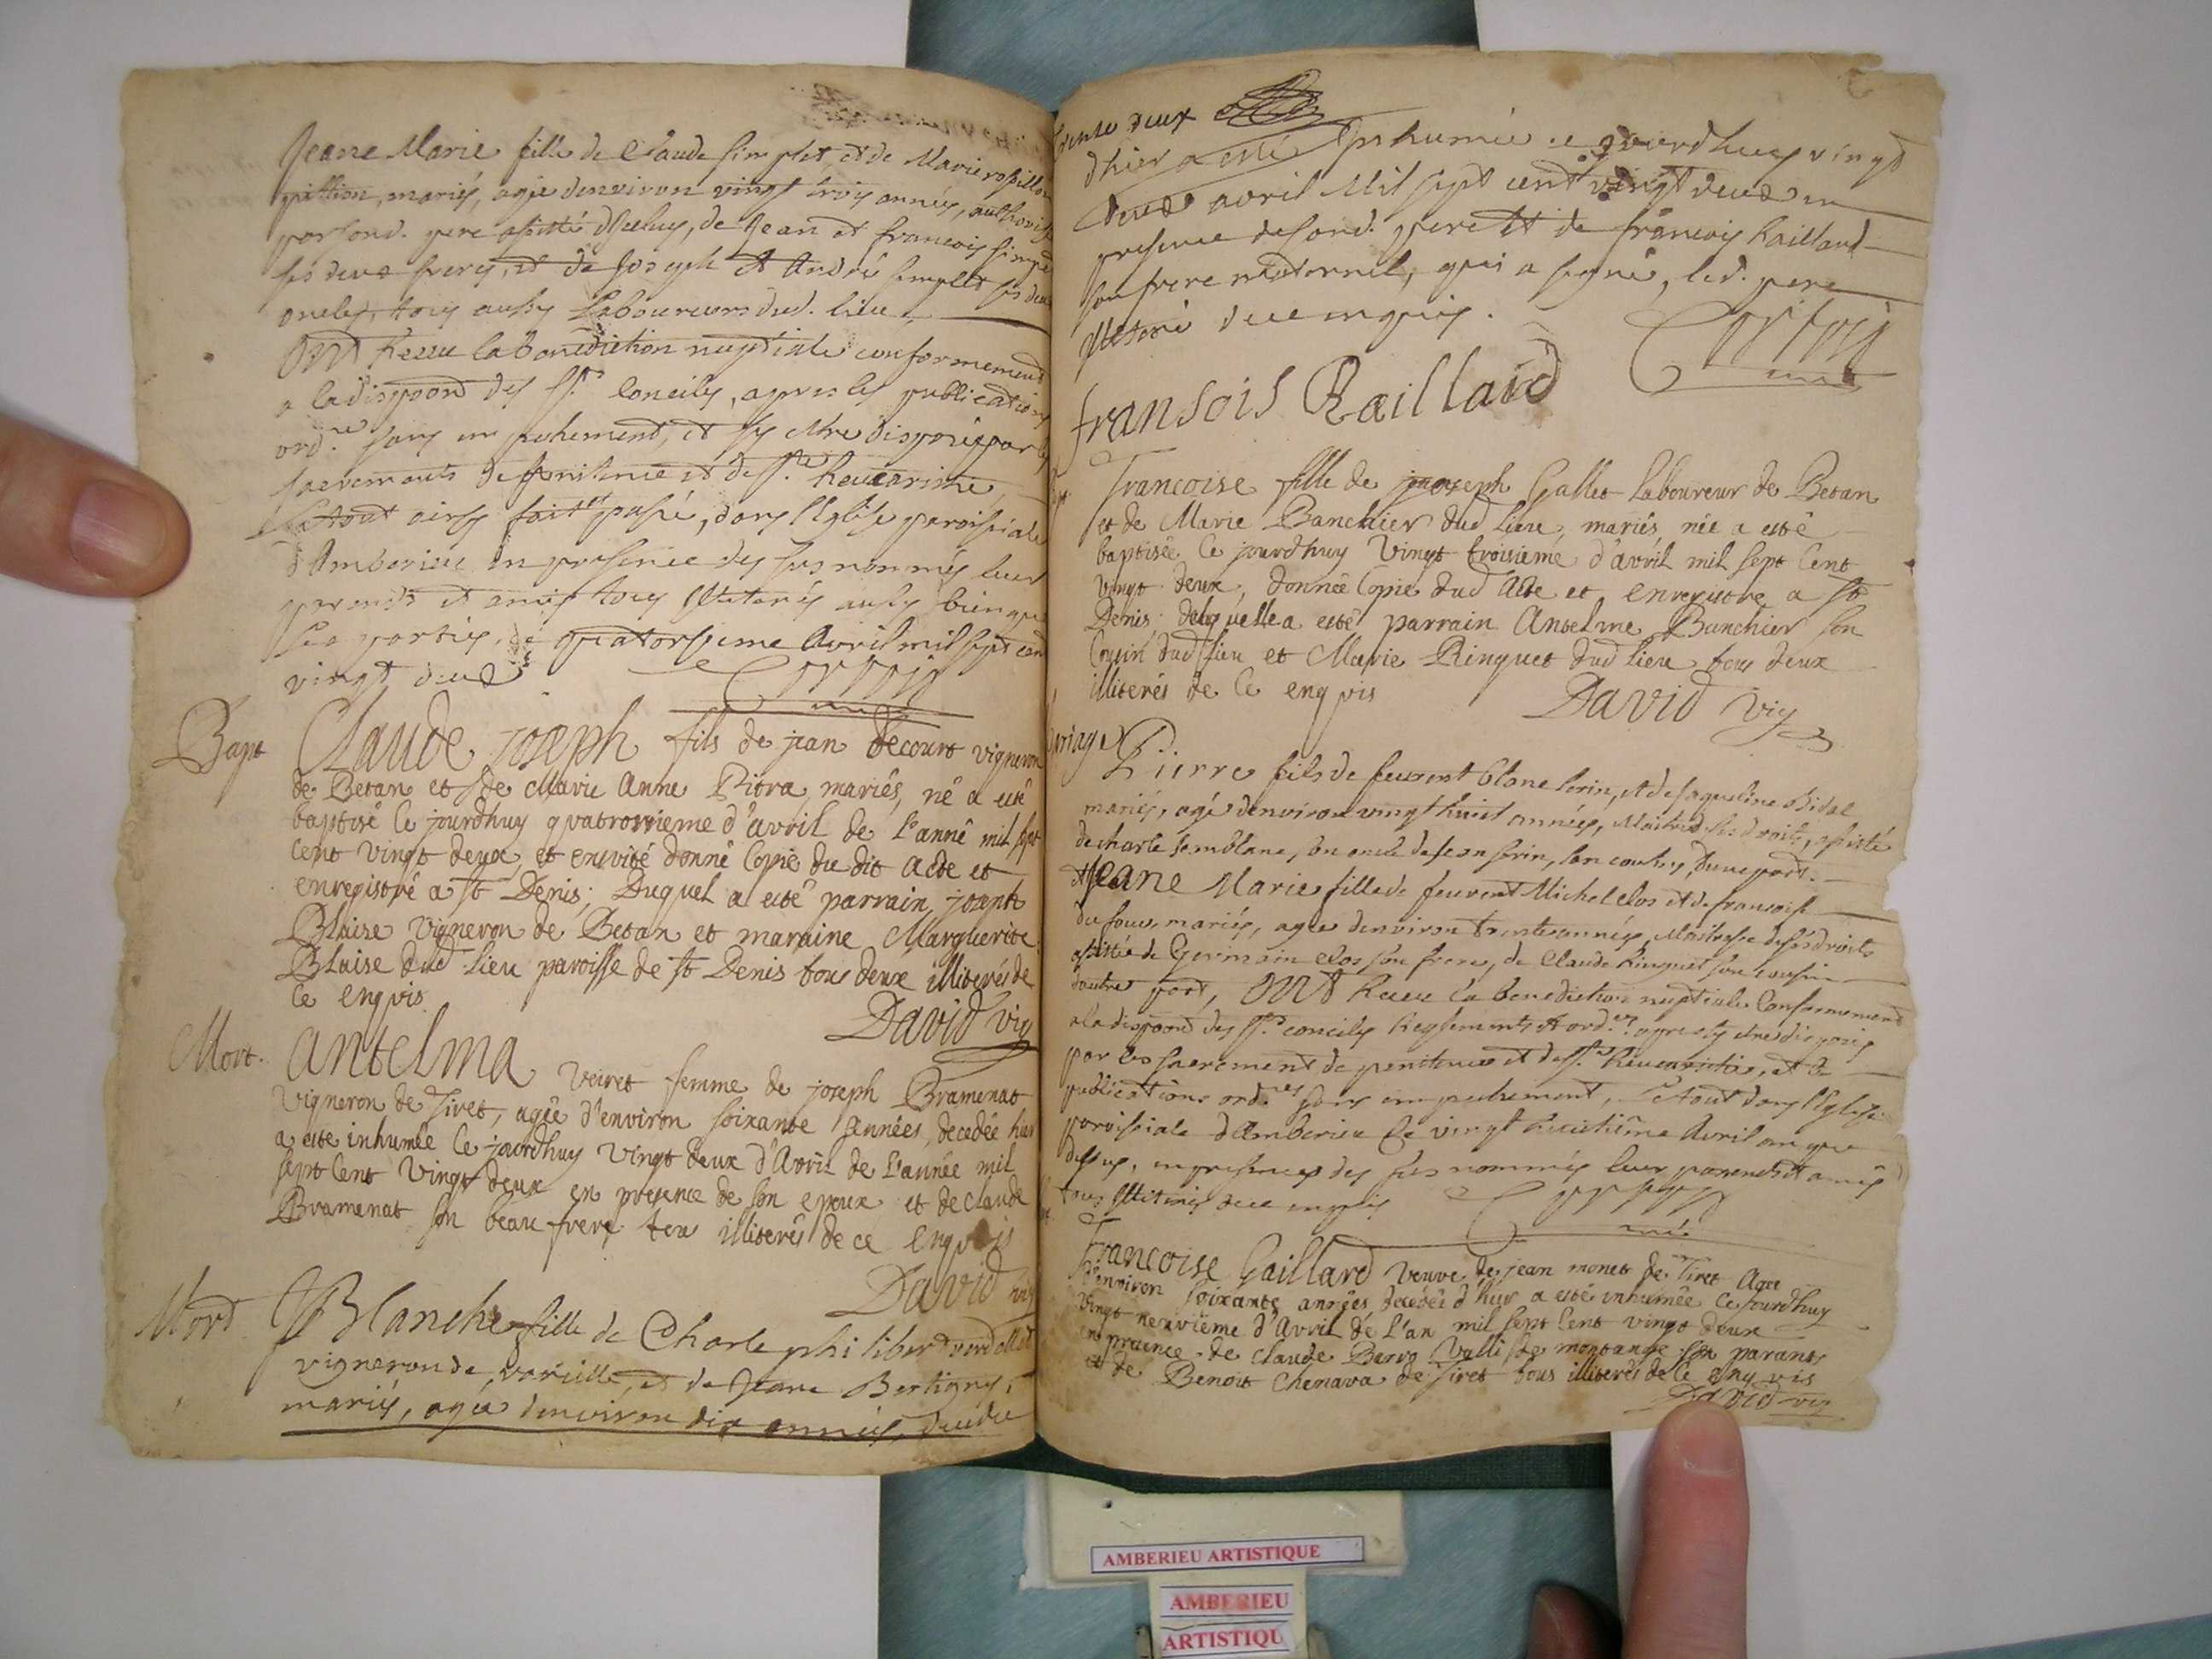 Jeane Marie fille de Claude simplet, et de Marie
mariés, agée denviron vingt trois années, authorisée
par sond. pere assisté diceluy, de Jean et francois simplet
ses deux freres, et de Joseph et André simplet ses deux
oncles, tous aussy Laboureurs dud. lieu
Ont Receu la benediction nuptiale conformement
a la dispoon des Sts. Conciles, apres les publications
ordres. sans empechement, et sy etre disposés par les
sacrements de penitence et de ste.
Le tout ainsy fait et passé, dans l'Eglise paroissiale
d'Amberieu en presence des sus nommés leurs
parents et amis tous illiterés aussy bien que
les parties, ce quatorsieme Avril mil sept cent
vingt deux
Bapt
Claude joseph fils de jean decourt vigneron
de Betan et de Marie Anne Pitra, mariés, né a esté
baptisé Ce jourdhuy quatorsieme d'avril de l'anné mil sept
Cent Vingt deux, et ensuite donné Copie du dit Acte et
enregistré a St Denis; Duquel a esté parrain joseph
Blaise Vigneron de Betan et maraine Marguerite
Blaise dud. lieu paroisse de St Denis tous deux illiterés de
Ce enquis
David vic
Mort.
Antelma Veiret femme de joseph Bramenat
Vigneron de Tiret, agée d'environ soixante années, decedée hier
a esté inhumée Ce jourdhuy Vingt deux d'Avril de l'année mil
sept Cent Vingt deux en presence de son epoux et de Claude
Bramenat son beau frere tous illiterés de ce enquis
David vic
Mort
Blanche fille de Charle philibert
vigneron de vareille, et de Jeane Bertigny,
mariés, agée denviron dix années, decedée
dhier a esté Inhumée ce jourdhuy vingt
deux avril Mil sept cent vingt deux en
presence de sond. pere et de francois Raillard
son frere maternel, qui a signé, led. pere
illiteré de ce enquis.
fransois Raillard
Francoise fille de joseph Gallet Laboureur de Betan
et de Marie Banchier dud lieu, mariés, née a esté
baptisée Ce jourdhuy Vingt troisieme d'avril mil sept Cent
Vingt deux, donnée Copie dud Acte et enregistré a St
Denis; delaquelle a esté parrain Antelme Banchier son
Cousin dud lieu et Marie Ringuet dud lieu tous deux
illiterés de Ce enquis
David Vic
Pierre fils de feuvent Clane serin, et de Jaqueline Bidal
mariés, agé denviron vingt huit années, Maitre de ses droits, assisté
de charle semblanc, son oncle de Jean serin, son cousin, dune part.
et Jeane Marie fille de feuvent Michel clos et de francoise
dufour, mariés, agée denviron trente années, Maitresse de ses droits
assistée de Germain clos son frere, de Claude Ringuet son cousin
dautre part, Ont Receu la benediction nuptiale Conformement
a la dispoon des Sts. conciles Reglements et ordces. apres sy etre disposés
par les sacrement de penitence et de ste. et les
publications ordres sans empechement, Le tout dans l'Eglise
paroissiale d'Amberieu Ce vingt huitième Avril an que
dessus, en presence des sus nommés leurs parents et amis
tous illiterés de ce enquis
Francoise Gaillard Veuve de jean monet de Tiret Agee
d'environ soixante années decedée d'hier a esté inhumée Ce jourdhuy
Vingt neuvième d'Avril de l'an mil sept Cent vingt deux
en presence de claude Barro Valli de montange son parant
et de Benoit Chenava de Tiret tous illiterés de Ce enquis
David vic
AMBERIEU ARTISTIQUE
AMBERIEU
ARTISTIQU